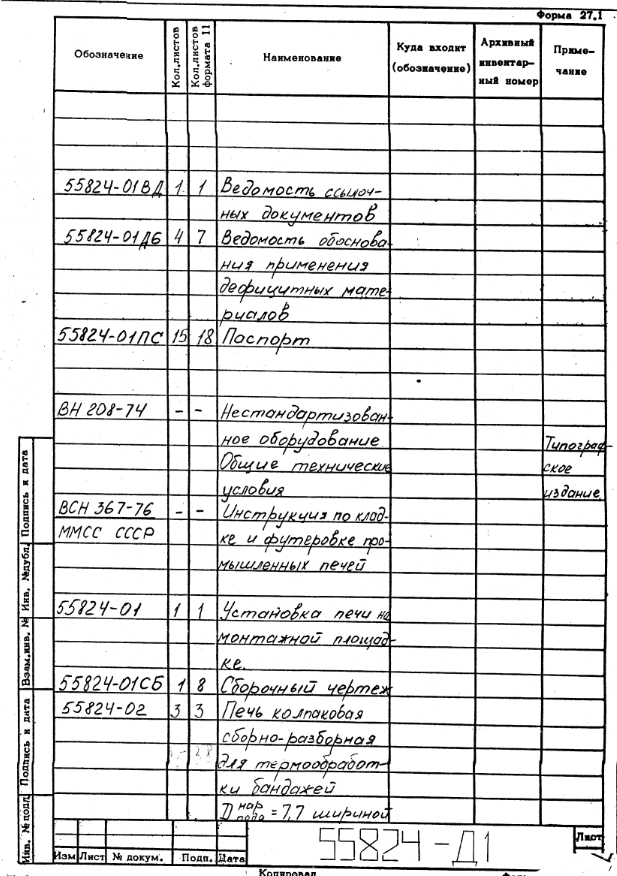 Форма 27.1
Обозначение
Кол.листов
Кол.листов формата 11
Наименование
Куда входит (обозначение)
Архивный инвентар-ный номер
Приме-чание
55824-01ВД 1 1 Ведомость ссылоч-
ных документов
55824-01Д6 4 7 Ведомость обоснова-
ния применения
дефицитных мате-
риалов
55824-01ПС 15 18 Паспорт
ВН 208-74 - - Нестандартизован-
ное оборудование Типограф-
Общие технические ское
условия издание
ВСН 367-76 - - Инструкция по клад-
ММСС СССР ке и футеровке про-
мышленных печей
55824-01 1 1 Установка печи на
монтажной площад-
ке.
55824-01СБ 1 8 Сборочный чертеж
55824-02 3 3 Печь колпаковая
сборно-разборная
для термообработ-
ки бандажей
D нар = 7,7 шириной
Инв. № подл. Подпись и дата Взам.инв. № Инв. №дубл. Подпись и дата
Изм Лист № докум. Подп. Дата
55824-Д1
Лист
Копировал